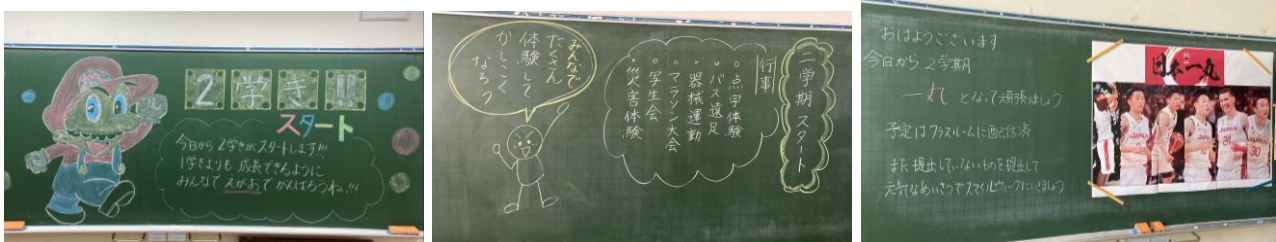 2学き!!
スタート
今日から2学きがスタートします!!!
1学きよりも成長できるように
みんなでえがおでがんばろうね!!!
二学期スタート
行事
点字体験
バス遠足
器械運動
マラソン大会
写生会
災害体験
みんなで
たくさん
体験して
かしこく
なろう
おはようございます
今日から2学期
一丸となって頑張ましょう
予定はクラスルームに配信済
まだ提出していないものを提出して
元気なあいさつでスマイルウィークにしていきましょう
日本一丸
JAPAN
JAPAN
JAPAN
JAPAN
24
30